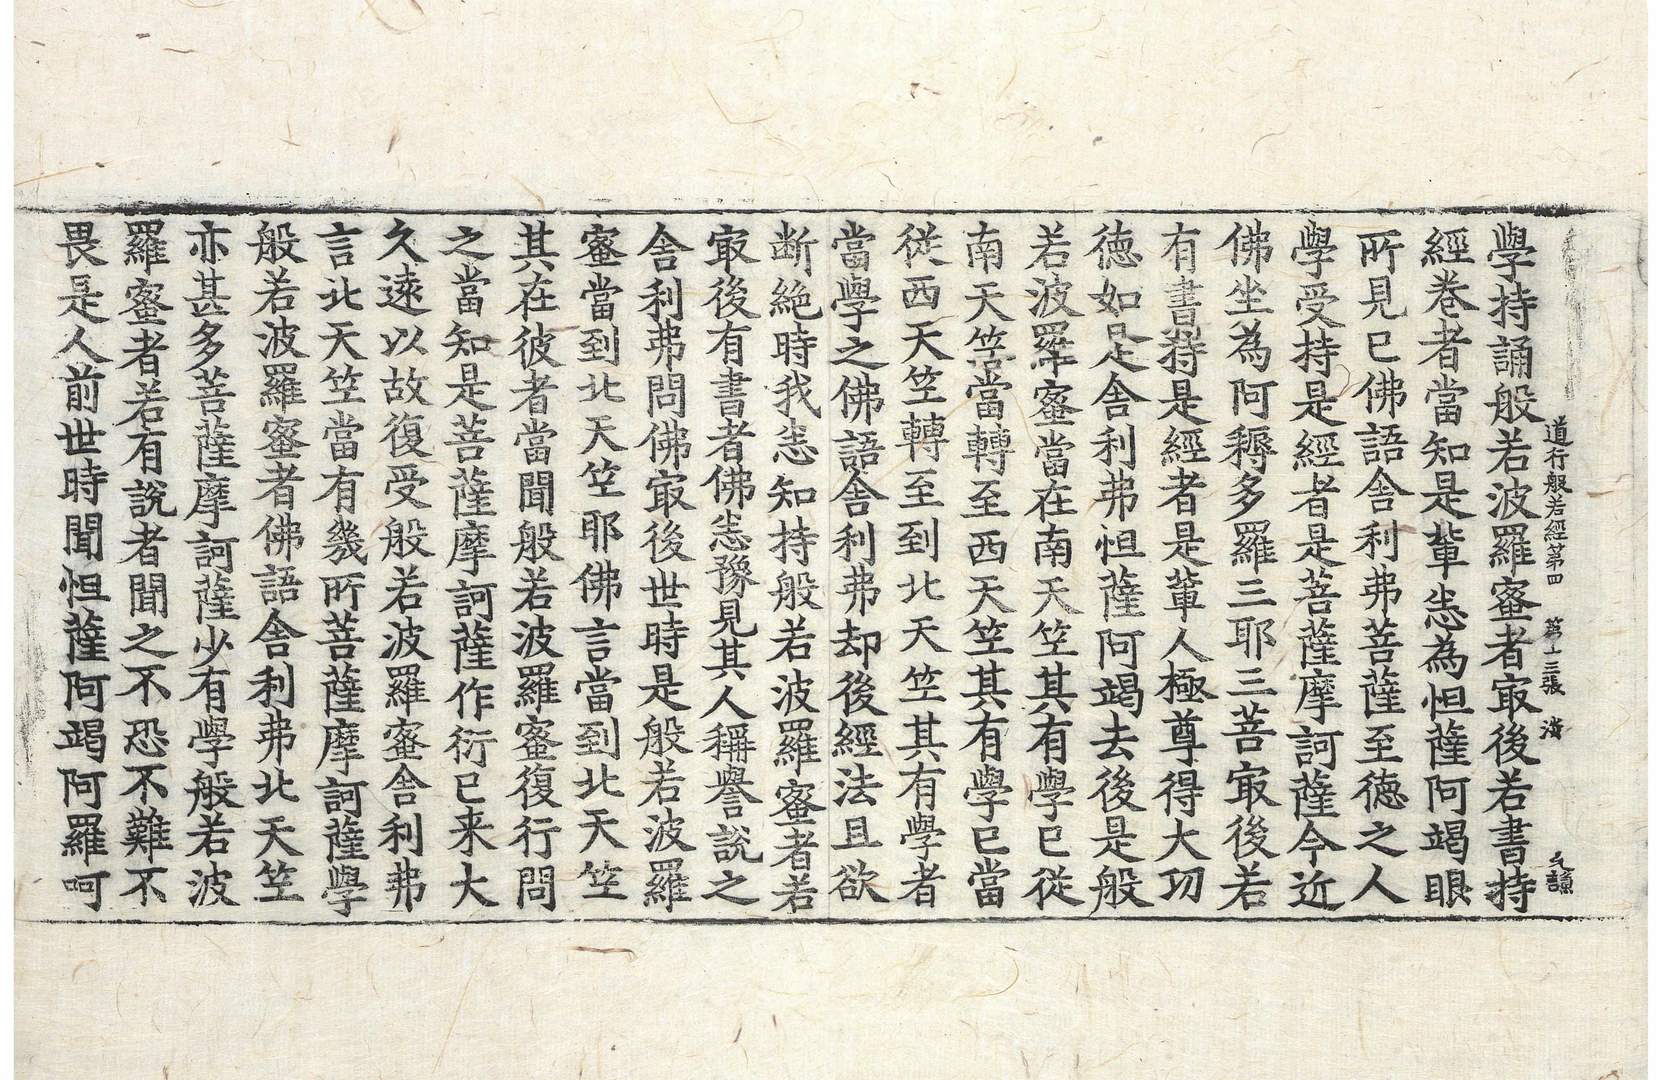 道行般若經第四 第十三張
學持誦般若波羅蜜者㝡後若書持
經卷者當知是輩悉為怛薩阿竭眼
所見已佛語舍利弗菩薩至德之人
學受持是經者是菩薩摩訶薩今近
佛坐為阿耨多羅三耶三菩㝡後若
有書持是經者是輩人極尊得大功
德如是舍利弗怛薩阿竭去後是般
若波羅蜜當在南天竺其有學已從
南天竺當轉至西天竺其有學已當
從西天竺轉至到北天竺其有學者
當學之佛語舍利弗却後經法且欲
断絶時我悉知持般若波羅蜜者若
㝡後有書者佛悉豫見其人稱譽說之
舍利弗問佛㝡後世時是般若波羅
蜜當到北天竺耶佛言當到北天竺
其在彼者當聞般若波羅蜜復行問
之當知是菩薩摩訶薩作衍已来大
久遠以故復受般若波羅蜜舍利弗
言北天竺當有幾所菩薩摩訶薩學
般若波羅蜜者佛語舍利弗北天竺
亦甚多菩薩摩訶薩少有學般若波
羅蜜者若有說者聞之不恐不難不
畏是人前世時聞怛薩阿竭阿羅呵